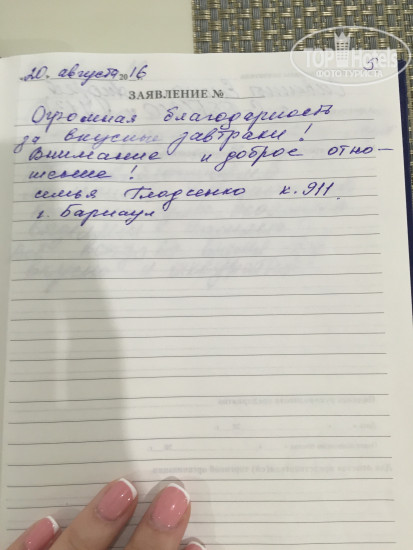 «20» августа 2016
5
ЗАЯВЛЕНИЕ №
Огромная благодарность
за вкусные завтраки!
Внимание и доброе отно-
шение!
семья к. 911
г. Барнаул
TopHotels
ФОТО ТУРИСТА